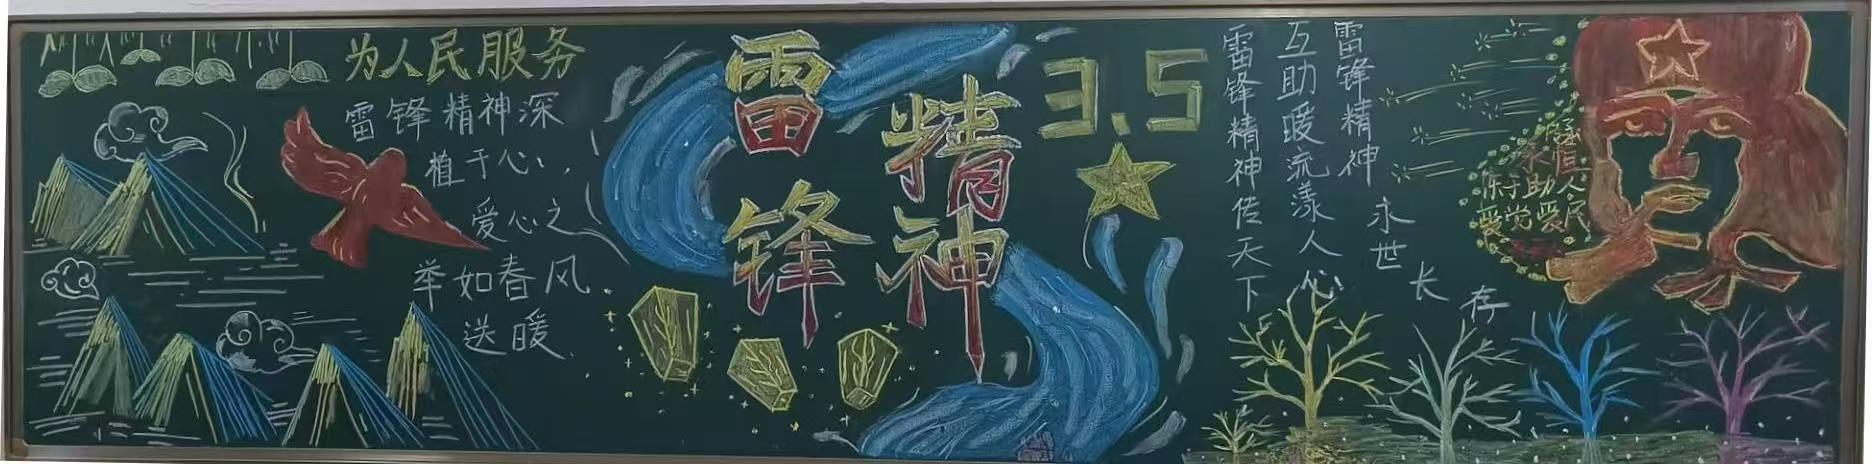 为人民服务
雷锋精神深
植于心,
爱心之
举如春风
送暖.
雷锋
精神
3.5
雷锋精神
永世
长
存
互助暖流漾人心
雷锋精神传天下
永恒
乐于助人
爱党爱民